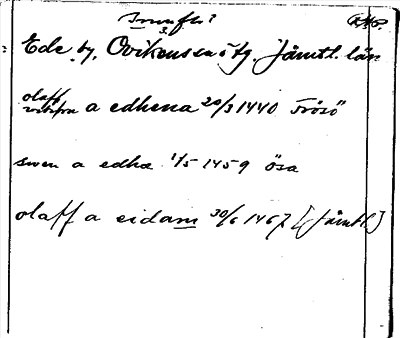 Ede by, Ovikens sn o tg Jämtl. län
olaff a edhena 20/3 1440 Frösö
swen a edha 1/5 1459 Ösa
olaff a eidam 30/6 1467 [Jämtl.]